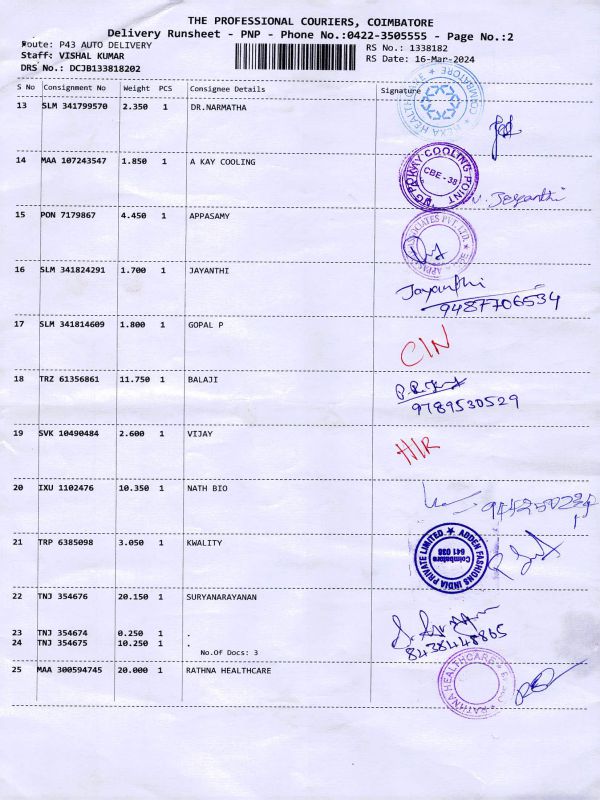 THE PROFESSIONAL COURIERS, COIMBATORE
Delivery Runsheet - PNP - Phone No.:0422-3505555 - Page No.:2
Route: P43 AUTO DELIVERY
Staff: VISHAL KUMAR
DRS No.: DCJB133818202
RS No.: 1338182
RS Date: 16-Mar-2024
S No Consignment No Weight PCS Consignee Details Signature
13 SLM 341799570 2.350 1 DR.NARMATHA
HEXA HEALTHCARE ★ COIMBATORE ★
14 MAA 107243547 1.850 1 A KAY COOLING
COOLING POINT
CBE - 38
V. Jeyanthi
15 PON 7179867 4.450 1 APPASAMY
ASSOCIATES PVT. LTD. ★
16 SLM 341824291 1.700 1 JAYANTHI
Jayanthi
9487706534
17 SLM 341814609 1.800 1 GOPAL P
C/N
18 TRZ 61356861 11.750 1 BALAJI
9789530529
19 SVK 10490484 2.600 1 VIJAY
20 IXU 1102476 10.350 1 NATH BIO
21 TRP 6385098 3.050 1 KWALITY
ADDEA FASHIONS INDIA PRIVATE LIMITED ★
Coimbatore
641 038
22 TNJ 354676 20.150 1 SURYANARAYANAN
23 TNJ 354674 0.250 1 .
24 TNJ 354675 10.250 1 .
8438448865
No.Of Docs: 3
25 MAA 300594745 20.000 1 RATHNA HEALTHCARE
★ RATHNA HEALTHCARE ★